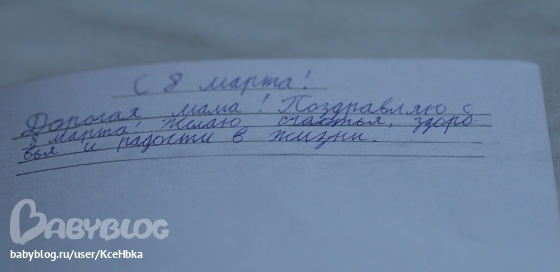 С 8 марта!
Дорогая мама! Поздравляю с
8 марта! Желаю счастья, здоро-
вья и радости в жизни.
BABYBLOG
babyblog.ru/user/KceHbka